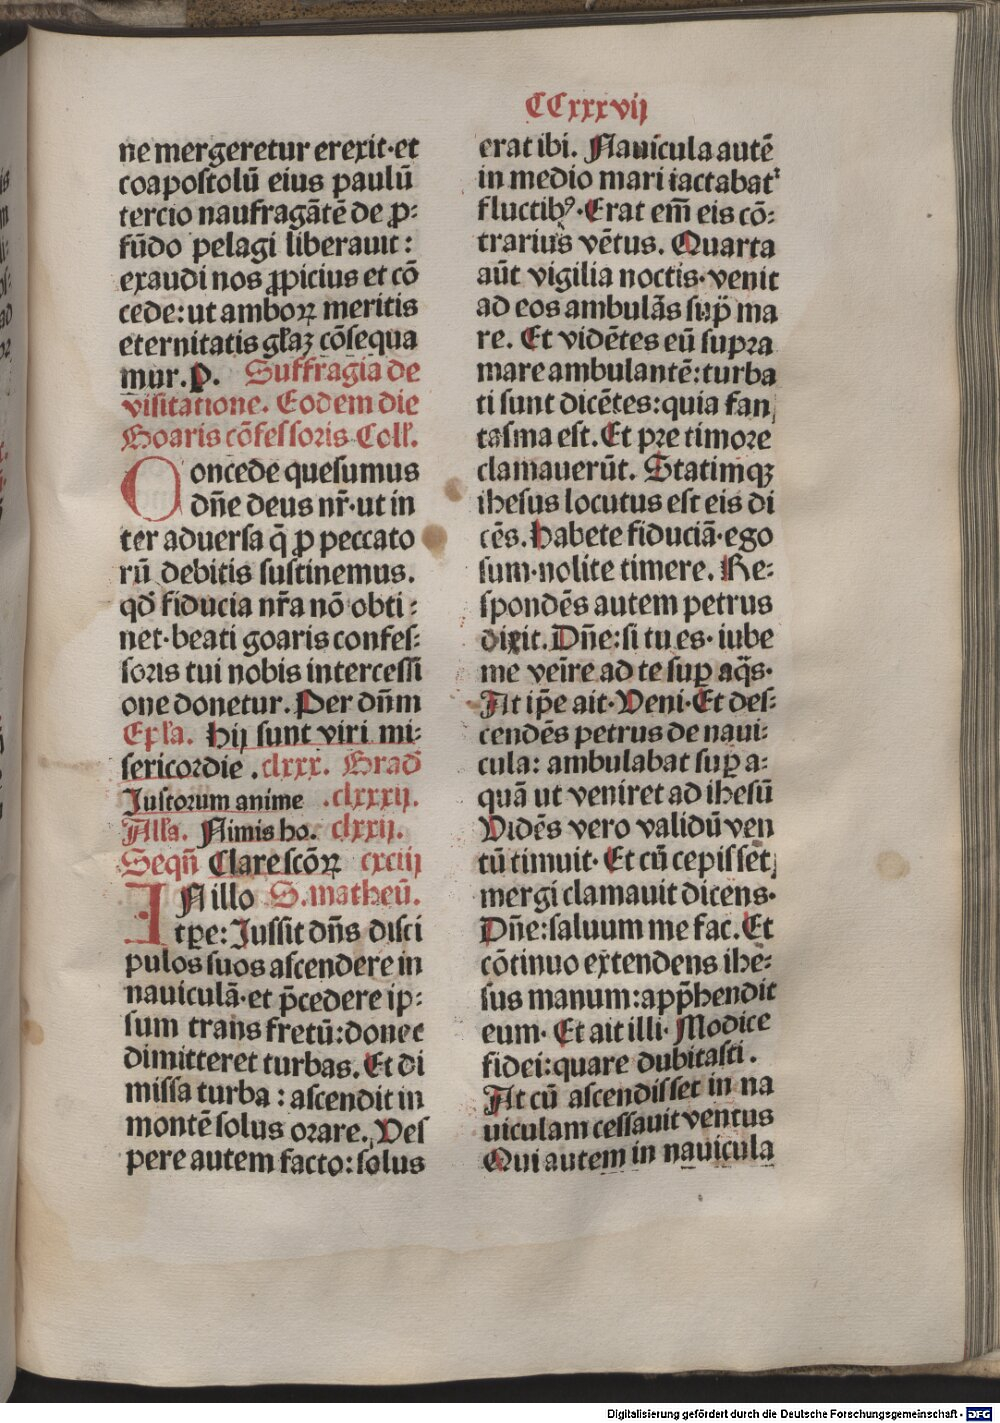 CCxxxvij
ne mergeretur erexit·et
coapostolū eius paulū
tercio naufragātē de ꝓ:
fūdo pelagi liberauit:
exaudi nos ꝓpicius et cō
cede:ut amboꝝ meritis
eternitatis głaꝫ cōsequa
mur.P. Suffragia de
visitatione. Eodem die
Goaris cōfessoris Coll.
Concede quesumus
dn̄e deus nr̄·ut in
ter aduersa q̄ ꝓ peccato
rū debitis sustinemus.
qd̄ fiducia nr̄a nō obti:
net·beati goaris confes:
soris tui nobis intercessi
one donetur. Per dn̄m
Epła. Hij sunt viri mi:
sericordie .clxxx. Grad̄
Iustorum anime .clxxxij.
Ałła. Nimis ho. clxxij.
Seqn̄ Clare scōꝝ cxciij
IN illo S. matheū.
tꝑe: Iussit dn̄s disci
pulos suos ascendere in
nauiculā·et p̄cedere ip:
sum trans fretū:donec
dimitteret turbas. Et di
missa turba : ascendit in
montē solus orare. Ves
pere autem facto:solus
erat ibi. Nauicula autē
in medio mari iactabat᷑
fluctibꝰ·Erat em̄ eis cō:
trarius vētus. Quarta
aūt vigilia noctis·venit
ad eos ambulās sup̄ ma
re. Et vidētes eū supra
mare ambulantē:turba
ti sunt dicētes:quia fan
tasma est. Et pre timore
clamauerūt. Statimqꝫ
ihesus locutus est eis di
cēs. Habete fiduciā·ego
sum·nolite timere. Re:
spondēs autem petrus
dixit. Dn̄e:si tu es· iube
me veīre ad te suꝑ aq̄s·
At ip̄e ait·Veni·Et des:
cendēs petrus de naui:
cula: ambulabat suꝑ a:
quā ut veniret ad ihesū
Vidēs vero validū ven
tū timuit· Et cū cepisset
mergi clamauit dicēns·
Dn̄e:saluum me fac. Et
cōtinuo extendens ihe:
sus manum:app̄hendit
eum· Et ait illi· Modice
fidei:quare dubitasti .
At cū ascendisset in na
uiculam cessauit ventus
Qui autem in nauicula
Digitalisierung gefördert durch die Deutsche Forschungsgemeinschaft - DFG